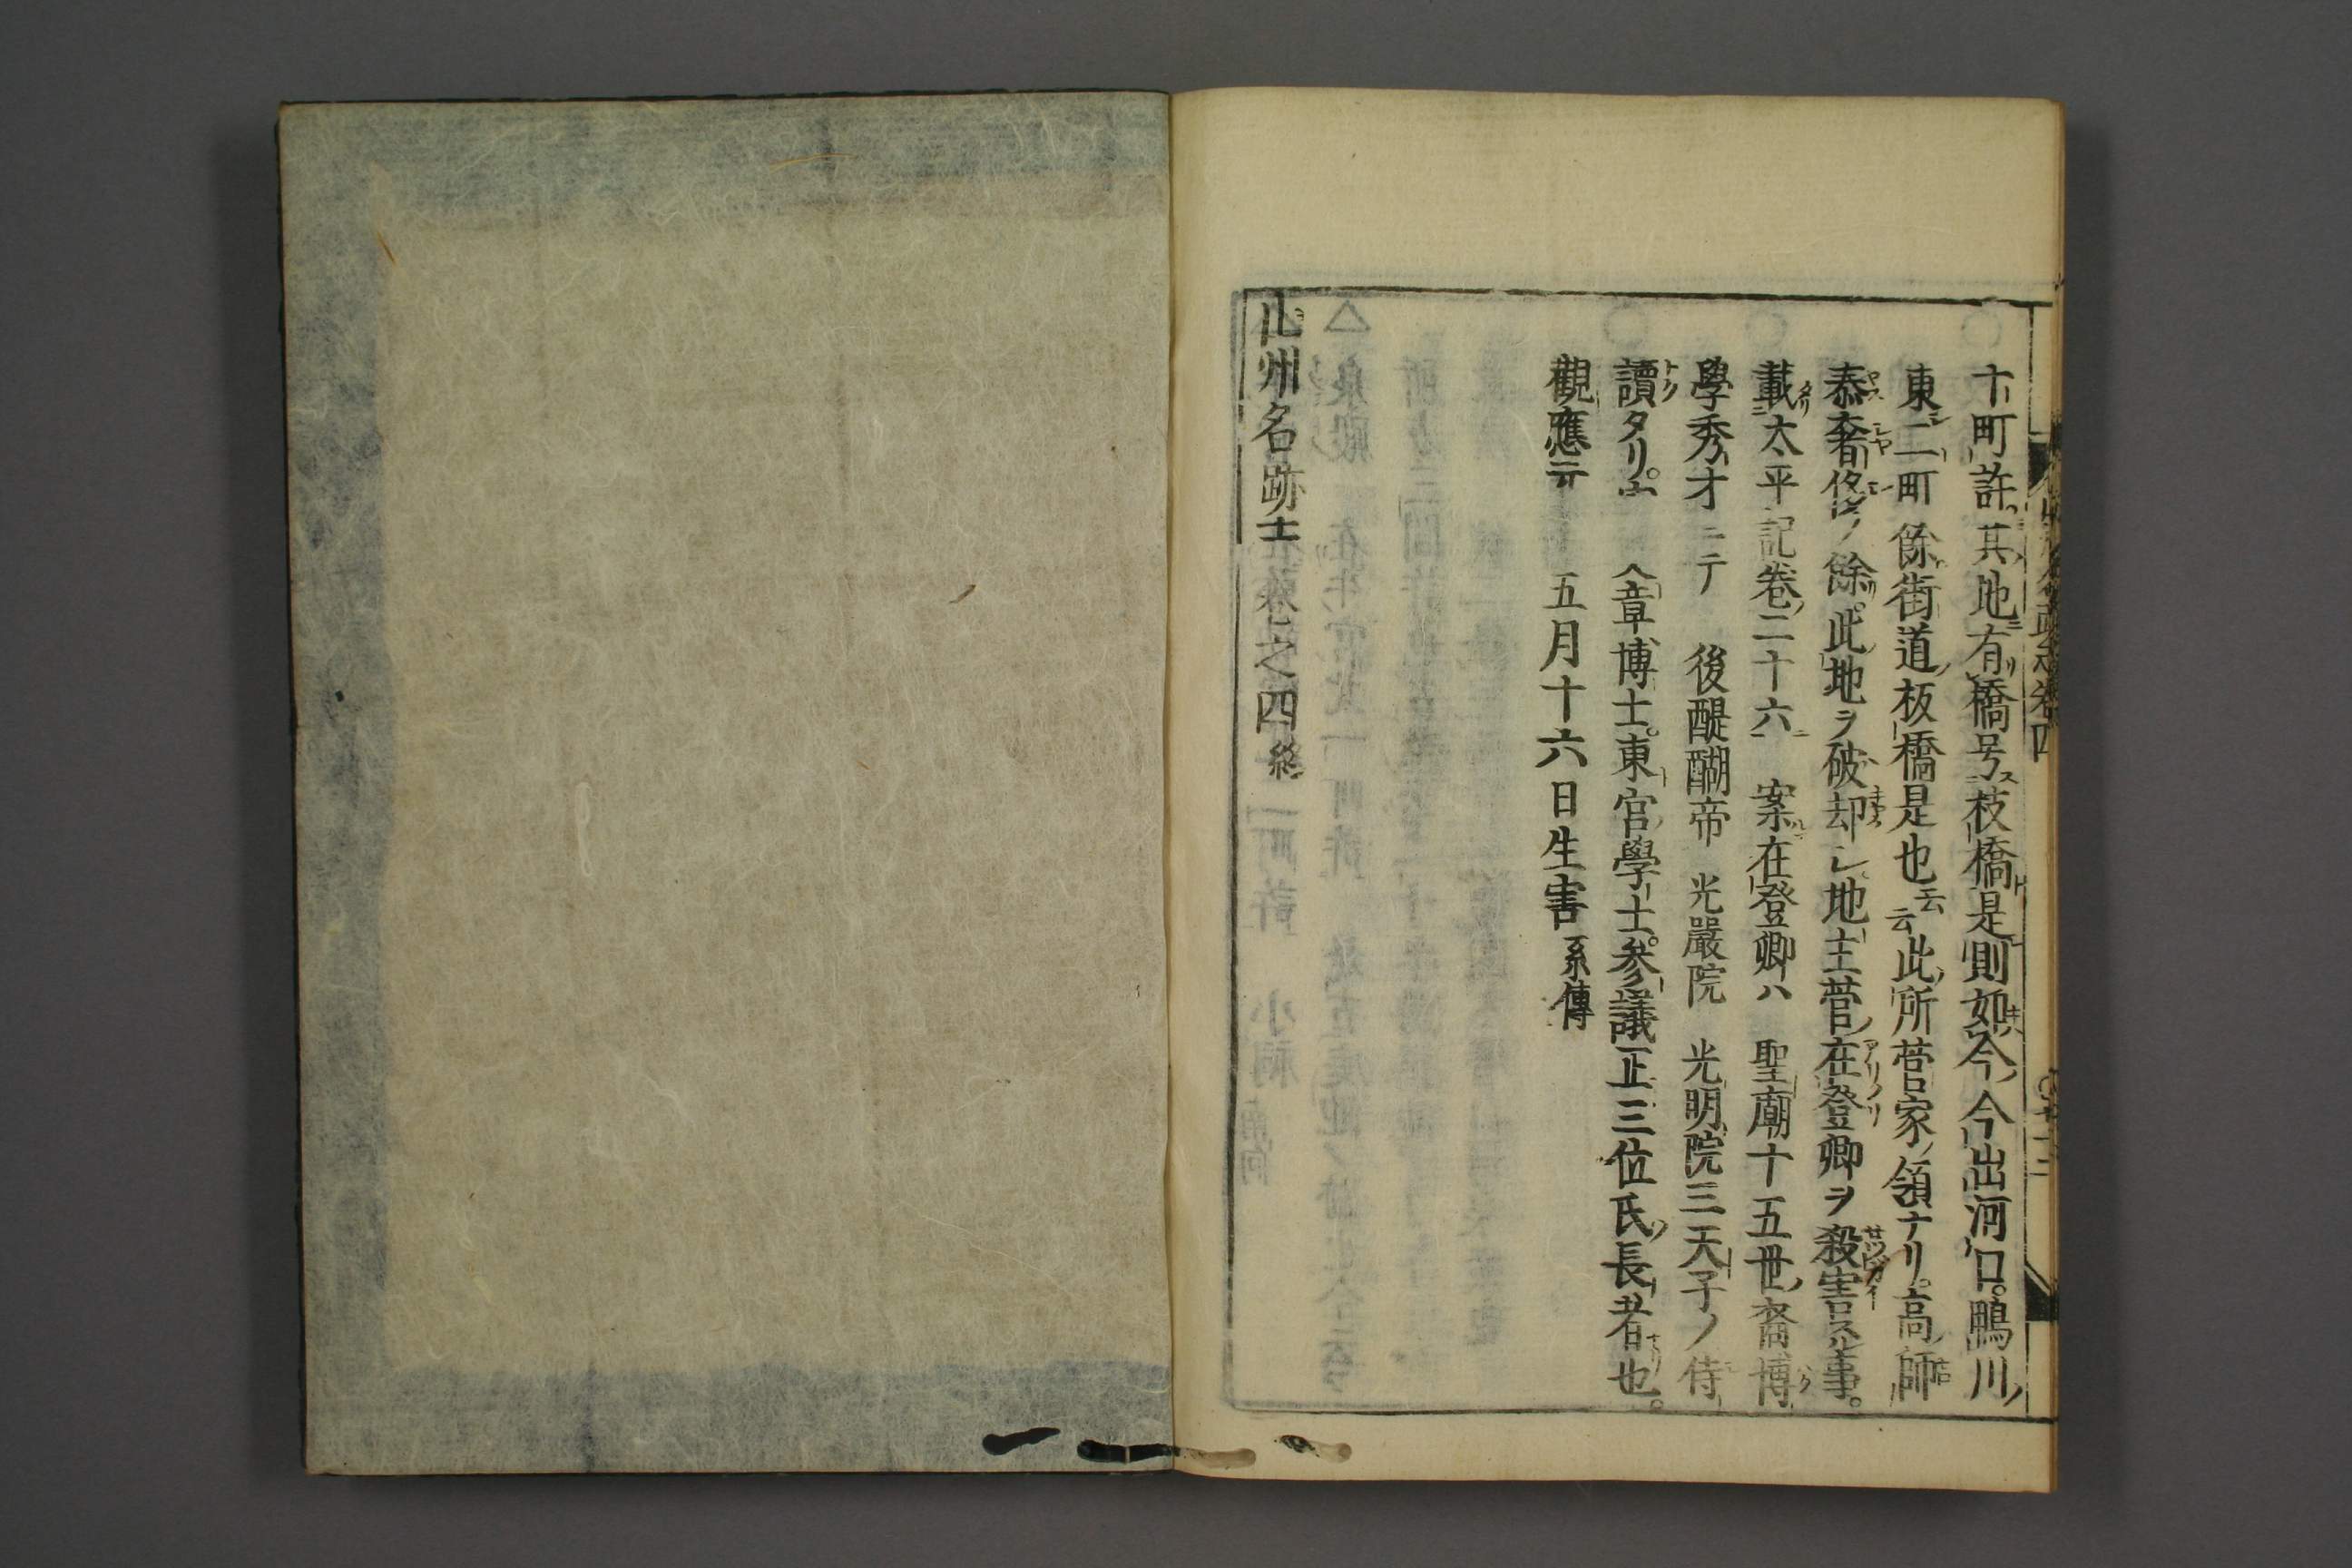 十町許其地有橋号枝橋是則如今今出河口。鴨川
東二町餘街道板橋是也云云此所菅家領ナリ。高師
泰奢侈ノ餘。此地ヲ破却シ地主菅在登卿ヲ殺害スル事。
載太平記卷二十六 案在登卿ハ 聖廟十五世裔博
學秀才ニテ 後醍醐帝 光嚴院 光明院三天子ノ侍
讀タリ。 章博士。東宮學士。參議正三位氏長者也。
觀應元 五月十六日生害 系傳
山州名跡志 卷之四終